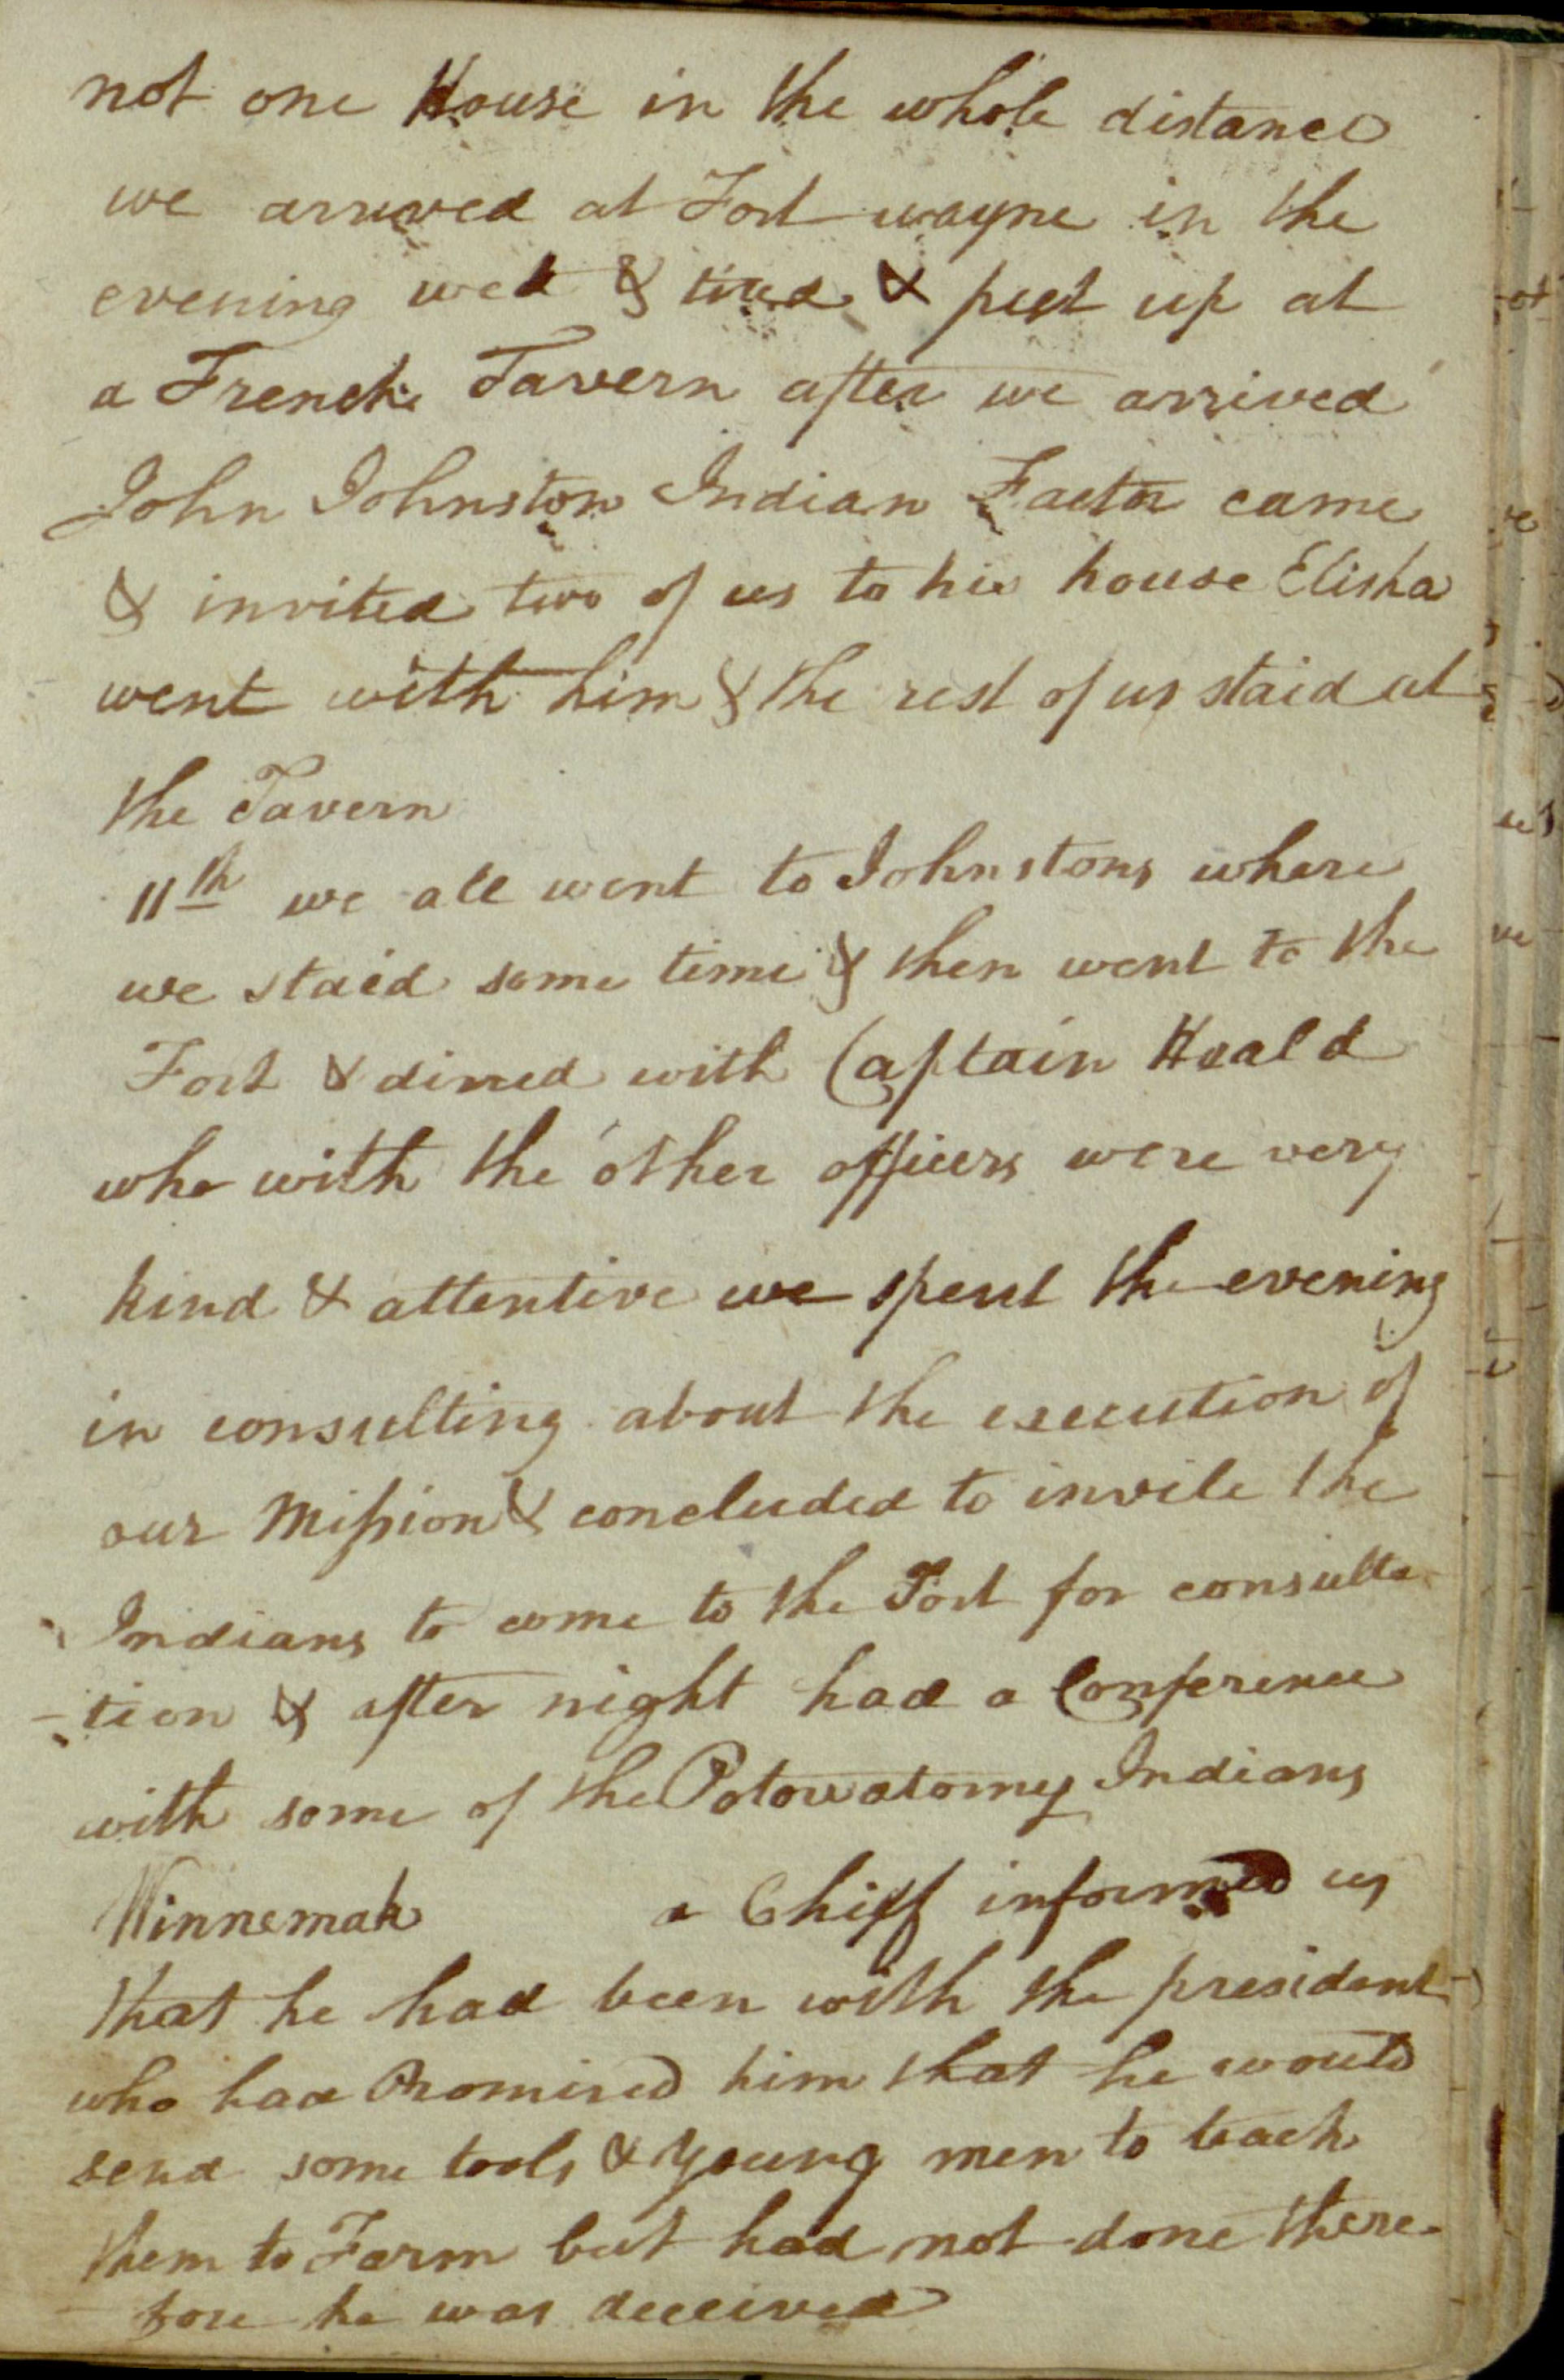 not one House in the whole distance
we arrived at Fort wayne in the
evening wet & tired & put up at
a French Tavern after we arrived
John Johnston Indian Factor came
& invited two of us to his house Elisha
went with him & the rest of us staid at
the Tavern
11th we all went to Johnstons where
we staid some time & then went to the
Fort & dined with Captain Heald
who with the other officers were very
kind & attentive we spent the evening
in consulting about the execution of
our Mission & concluded to invite the
Indians to come to the Fort for consulta
-tion & after night had a Conference
with some of the Potowatomy Indians
Winnemak a Chiff informed us
that he had been with the president
who had Promised him that he would
send some tools & Young men to teach
them to Farm but had not done there-
fore he was deceived